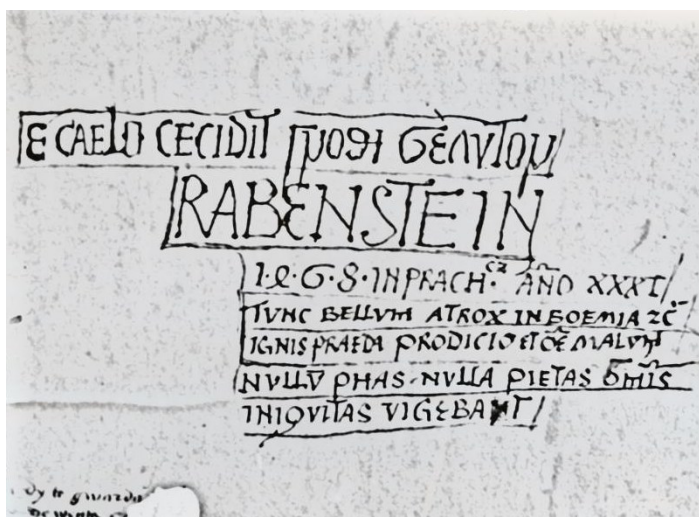 E CAELO CECIDIT ΓΝΟΘΙ ΣΕΑΥΤΟΝ
RABENSTEIN
I·Q·G·S·IN PRACH·cz AÑO XXXI/
TVNC BELLVM ATROX IN BOEMIA ZC̃
IGNIS PRAEDA PRODICIO ET OE͂ MALUM
NVLLŪ PHAS·NVLLA PIETAS OMĪS
INIQVITAS VIGEBANT/